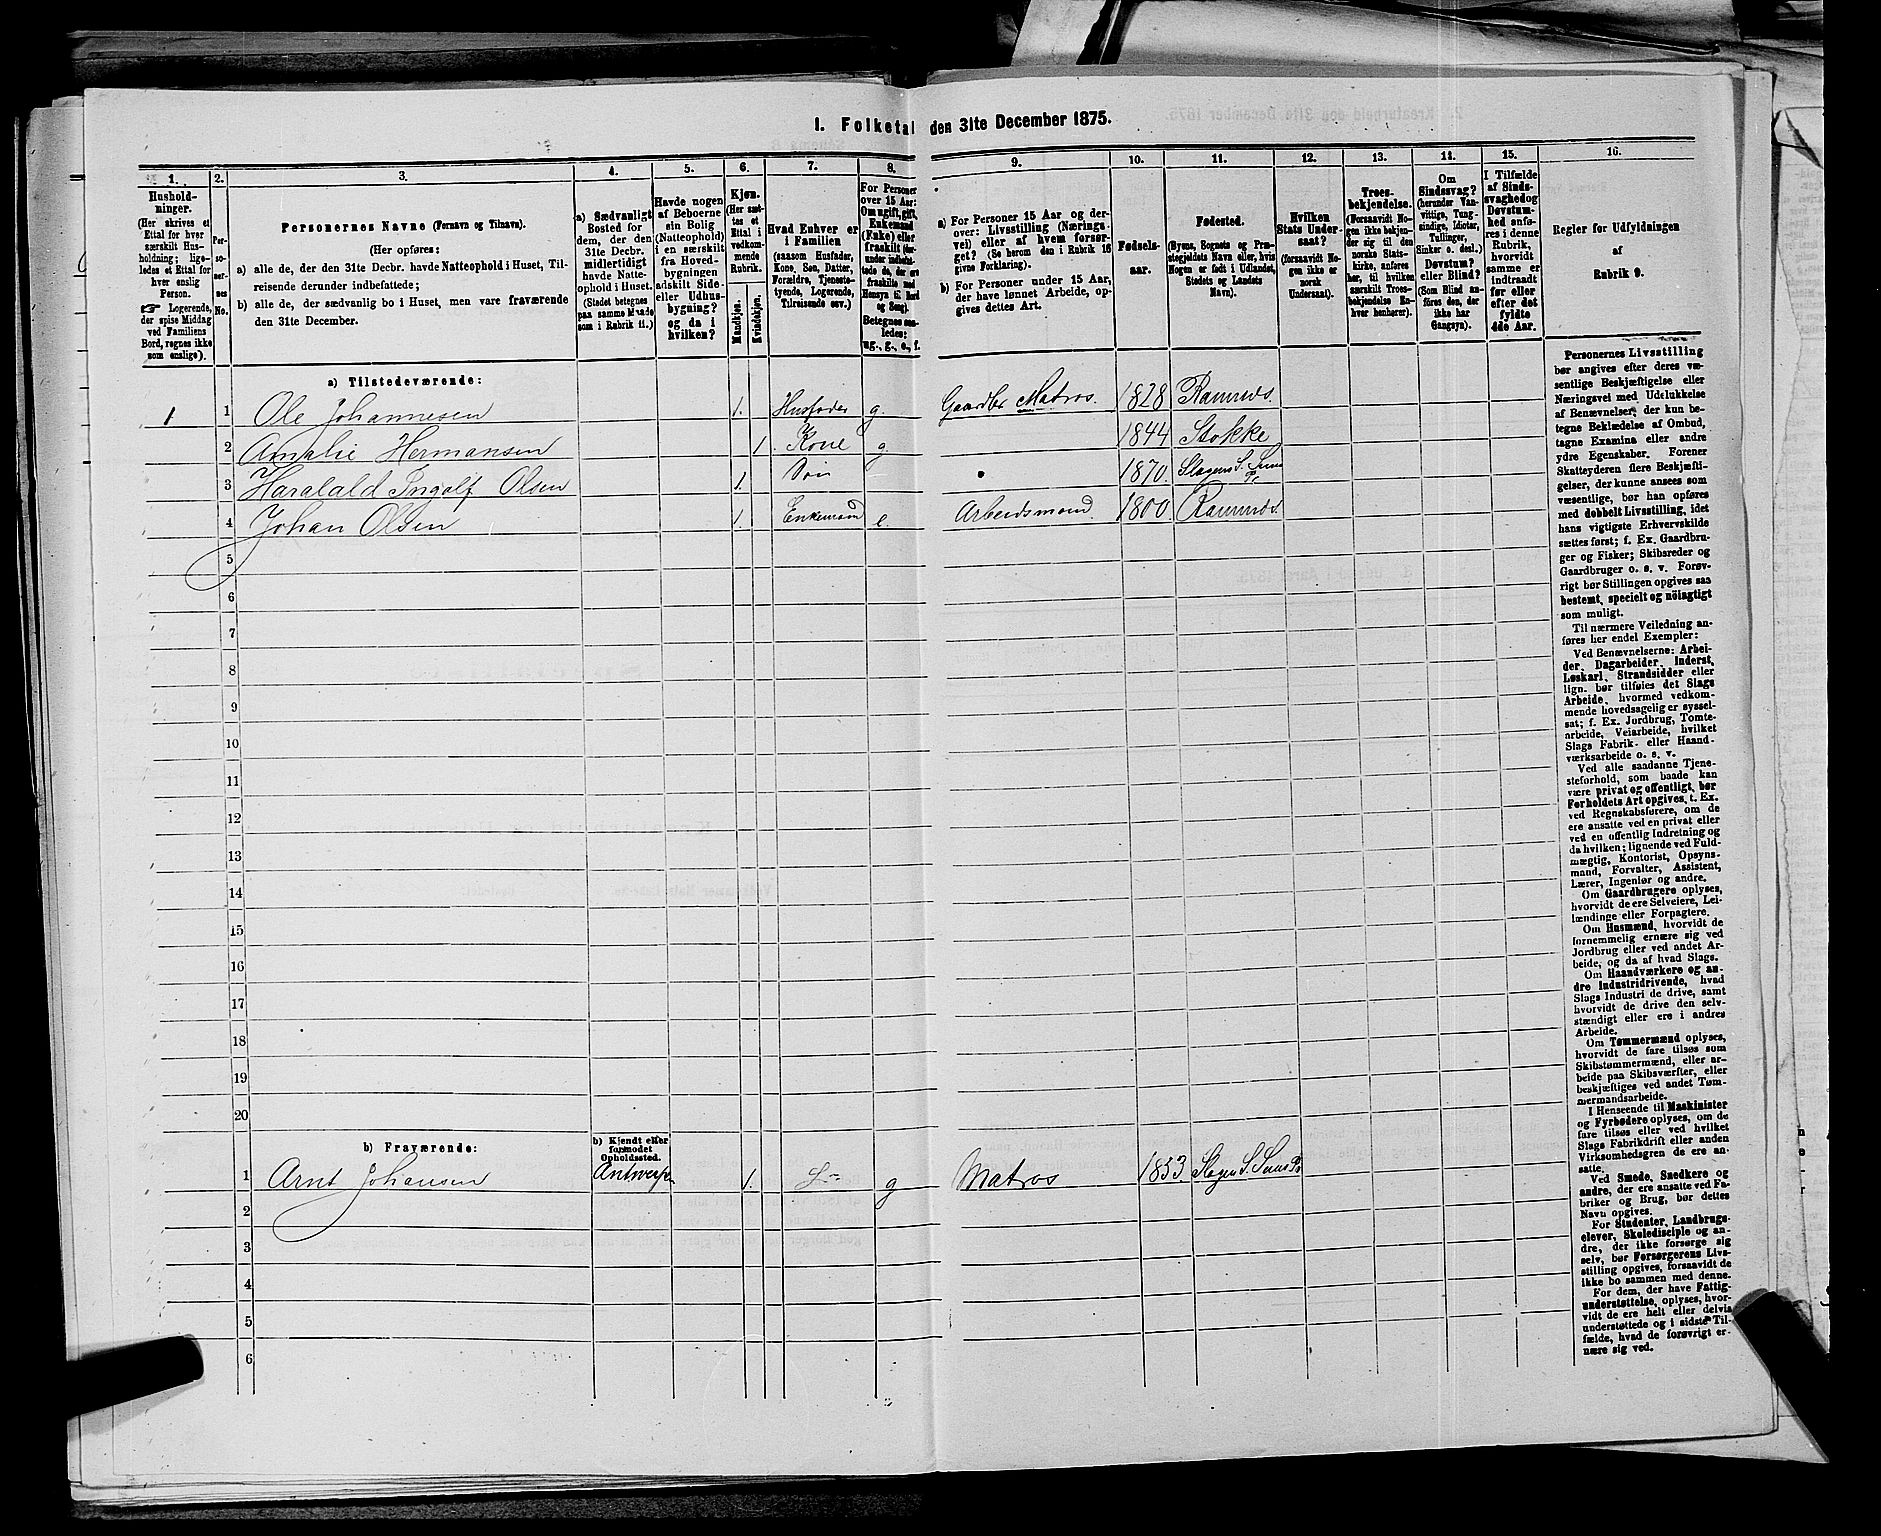 1. Folketal den 31te December 1875.
1.
Hushold-
ninger.
(Her skrives et
Ettal for hver
særskilt Hus-
holdning; lige-
ledes et Ettal for
hver enslig
Person.
☞ Logerende,
der spise Middag
ved Familiens
Bord, regnes ikke
som enslige).
2.
Per-
so-
ner-
nes
No.
3.
Personernes Navne (Fornavn og Tilnavn).
(Her opføres:
a) alle de, der den 31te Decbr. havde Natteophold i Huset, Til-
reisende derunder indbefattede;
b) alle de, der sædvanlig bo i Huset, men vare fraværende
den 31te December.
4.
a) Sædvanligt
Bosted for
dem, der den
31te Decbr.
midlertidigt
havde Natte-
ophold i Huset.
(Stedet betegnes
paa samme Maade
som i Rubrik 11.)
5.
Havde nogen
af Beboerne
sin Bolig
(Natteophold)
i en særskilt
fra Hoved-
bygningen
adskilt Side-
eller Udhus-
bygning?
og da i
hvilken?
6.
Kjøn.
(Her sæt-
tes et
Ettal i
vedkom-
mende
Rubrik.
Mandkjøn.
Kvindekjøn.
7.
Hvad Enhver er
i Familien
(saasom Husfader,
Kone, Søn, Datter,
Forældre, Tjeneste-
tyende, Logerende,
Tilreisende osv.)
8.
For Personer
over 15 Aar:
Om ugift, gift,
Enkemand
(Enke) eller
fraskilt (her-
under indbefat-
tede de, der ere
fraskilte med
Hensyn til Bord
og Seng).
Betegnes saa-
ledes:
ug., g., e., f.
9.
a) For Personer 15 Aar og der-
over: Livsstilling (Nærings-
vei) eller af hvem forsør-
get? (Se herom den i Rubrik 16
givne Forklaring).
b) For Personer under 15 Aar,
der have lønnet Arbeide, op-
gives dettes Art.
10.
Fødsels-
aar.
11.
Fødested.
(Byens, Sognets og Præ-
stegjeldets Navn eller, hvis
Nogen er født i Udlandet,
Stedets og Landets
Navn).
12.
Hvilken
Stats Under-
saat?
(forsaavidt No-
gen ikke er
norsk
Undersaat).
13.
Troes-
bekjendelse.
(Forsaavidt No-
gen ikke bekjen-
der sig til den
norske Stats-
kirke, anføres
her, til hvilken
særskilt Troes-
bekjendelse En-
hver henhører).
14.
Om
Sindssvag?
(herunder Van-
vittige, Tung-
sindige, Idioter,
Tullinger,
Sinker o. desl.)
Døvstum?
eller Blind?
(Som Blind an-
føres den, der
ikke har
Gangsyn).
15.
I Tilfælde
af Sinds-
svaghed og
Døvstum-
hed anfø-
res i denne
Rubrik,
hvorvidt
samme er
indtraadt
før eller
efter det
fyldte
4de Aar.
16.
Regler for Udfyldningen
af
Rubrik 9.
a) Tilstedeværende:
1 1 Ole Johannesen 1. Husfader g. Gaardbr Matros. 1828 Ramnæs.
2 Amalie Hermansen 1 Kone g. 1844 Stokke
3 Haralald Ingolf Olsen 1. Søn 1870. Slagens S. Sems Pr
4 Johan Olsen 1. Enkemand e. Arbeidsmand. 1800 Ramnæs.
5
6
7
8
9
10
11
12
13
14
15
16
17
18
19
20
b) Fraværende:
b) Kjendt eller
formodet
Opholdssted.
1 Arnt Johansen Antwerpen 1. g Matros 1853 Slagen S. Sems Pr
2
3
4
5
6
Personernes Livsstilling
bør angives efter deres væ-
sentlige Beskjæftigelse eller
Næringsvei med Udelukkelse
af Benævnelser, der kun be-
tegne Beklædelse af Ombud,
tagne Examina eller andre
ydre Egenskaber. Forener
Skatteyderen flere Beskjæfti-
gelser, der kunne ansees som
væsentlige, bør han opføres
med dobbelt Livsstilling, idet
hans vigtigste Erhvervskilde
sættes først; f. Ex. Gaardbru-
ger og Fisker; Skibsreder og
Gaardbruger o. s. v. Forøv-
rigt bør Stillingen opgives saa
bestemt, specielt og nöiagtigt
som muligt.
Til nærmere Veiledning an-
føres her endel Exempler:
Ved Benævnelserne: Arbei-
der, Dagarbeider, Inderst,
Løskarl, Strandsidder eller
lign. bør tilføies det Slags
Arbeide, hvormed vedkom-
mende hovedsagelig er syssel-
sat; f. Ex. Jordbrug, Tomte-
arbeide, Veiarbeide, hvilket
Slags Fabrik- eller Haand-
værksarbeide o. s. v.
Ved alle saadanne Tjene-
steforhold, som baade kan
være privat og offentligt, bør
Forholdets Art opgives, t. Ex.
ved Regnskabsførere, om de
ere ansatte ved en privat eller
ved en offentlig Indretning og
da hvilken; lignende ved Fuld-
mægtig, Kontorist, Opsyns-
mand, Forvalter, Assistent,
Lærer, Ingeniør og andre.
Om Gaardbrugere oplyses,
hvorvidt de ere Selveiere, Lei-
lændinge eller Forpagtere.
Om Husmænd, hvorvidt de
fornemmelig ernære sig ved
Jordbrug eller ved andet Ar-
beide, og da af hvad Slags.
Om Haandværkere og an-
dre Industridrivende, hvad
Slags Industri de drive, samt
hvorvidt de drive den selv-
stændigt eller ere i andres
Arbeide.
Om Tømmermænd oplyses,
hvorvidt de fare tilsøs som
Skibstømmermænd, eller ar-
beide paa Skibsværfter, eller
beskjæftiges ved andet Tøm-
mermandsarbeide.
I Henseende til Maskinister
og Fyrbødere oplyses, om de
fare tilsøs eller ved hvilket
Slags Fabrikdrift eller anden
Virksomhedsgren de ere an-
satte.
Ved Smede, Snedkere og
andre, der ere ansatte ved Fa-
briker og Brug, bør dettes
Navn opgives.
For Studenter, Landbrugs-
elever, Skoledisciple og an-
dre, der ikke forsørge sig
selv, bør Forsørgerens Livs-
stilling opgives, forsaavidt de
ikke bo sammen med denne.
For dem, der have Fattig-
understøttelse, oplyses, hvor-
vidt de ere helt eller delvis
understøttede og i sidste Til-
fælde, hvad de forøvrigt er-
nære sig ved.